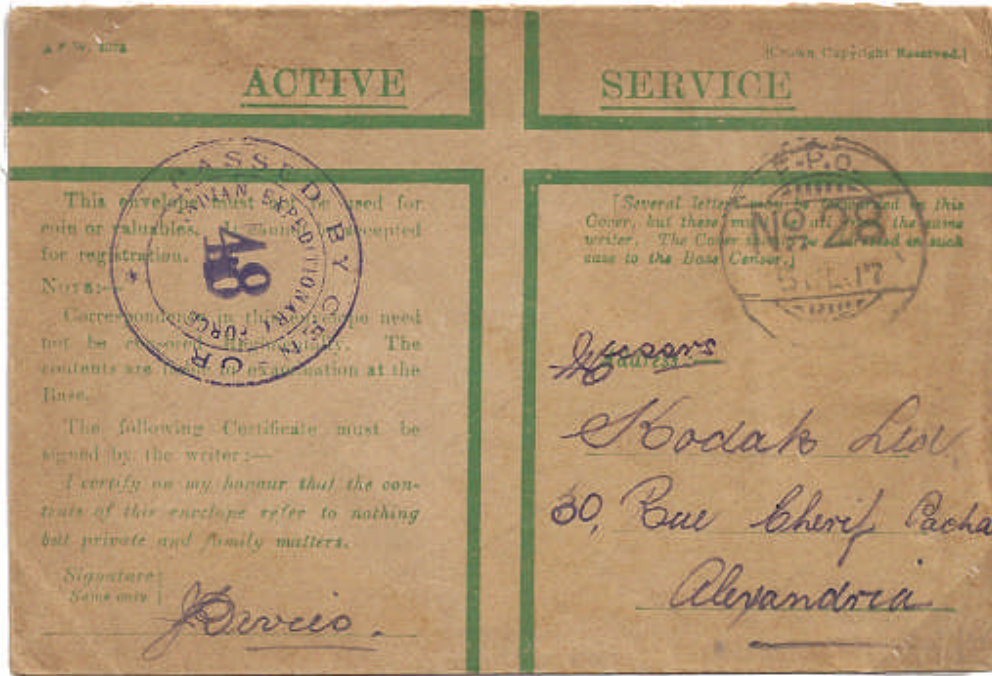 A.F.W.
[Crown Copyright Reserved.]
ACTIVE SERVICE
PASSED BY CENSOR
EXPEDITIONARY FORCE
This envelope must not be used for
coin or valuables. It cannot be accepted
for registration.
NOTE:—
Correspondence in this envelope need
not be censored Regimentally. The
contents are liable to examination at the
Base.
The following Certificate must be
signed by the writer:—
I certify on my honour that the con-
tents of this envelope refer to nothing
but private and family matters.
Signature
Name only
[Several letters may be in this
Cover, but these must all the same
writer. The Cover should be addressed in such
case to the Base Censor.]
No. 28
17
Address
Messrs
Kodak Ltd
30, Rue Cherif Pacha
Alexandria